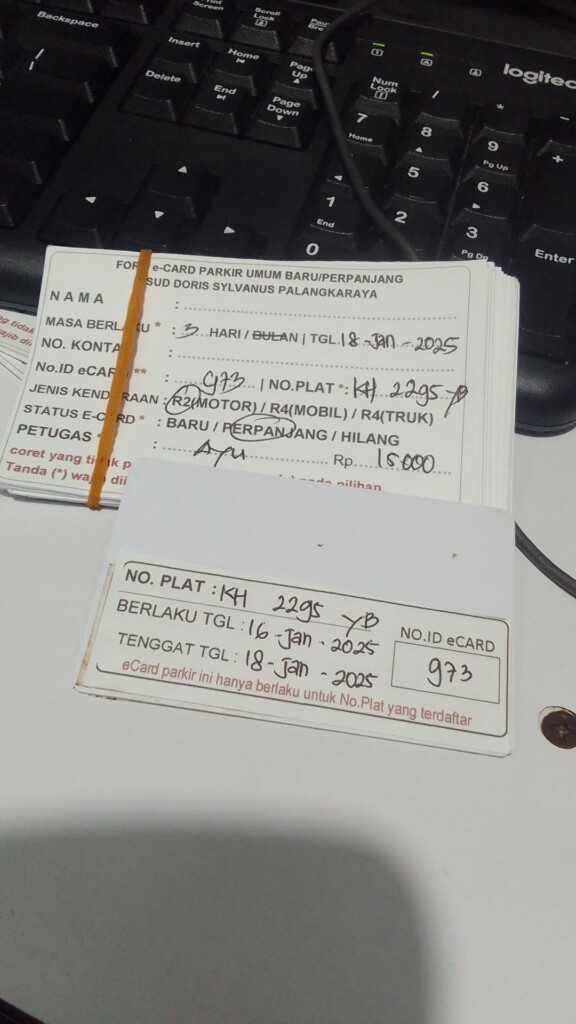 Backspace
Print
Screen
Scroll
Lock
Insert
Home
Page
Up
Delete
End
Page
Down
Num
Lock
logitec
/
*
-
7
Home
8
9
Pg Up
+
5
6
1
End
2
3
Pg Dn
0
Enter
FOR e-CARD PARKIR UMUM BARU/PERPANJANG
SUD DORIS SYLVANUS PALANGKARAYA
NAMA :
MASA BERLAKU * : 3 HARI / BULAN | TGL 18-Jan-2025
NO. KONTA :
No.ID eCARD ** : 973 | NO.PLAT * : KH 2295 YB
JENIS KENDARAAN : R2(MOTOR) / R4(MOBIL) / R4(TRUK)
STATUS E-CARD * : BARU / PERPANJANG / HILANG
PETUGAS * : Ayu Rp. 15000
coret yang tidak p pada pilihan
Tanda (*) wajib dii
NO. PLAT : KH 2295 YB
BERLAKU TGL : 16-Jan-2025
TENGGAT TGL : 18-Jan-2025
NO.ID eCARD
973
eCard parkir ini hanya berlaku untuk No.Plat yang terdaftar